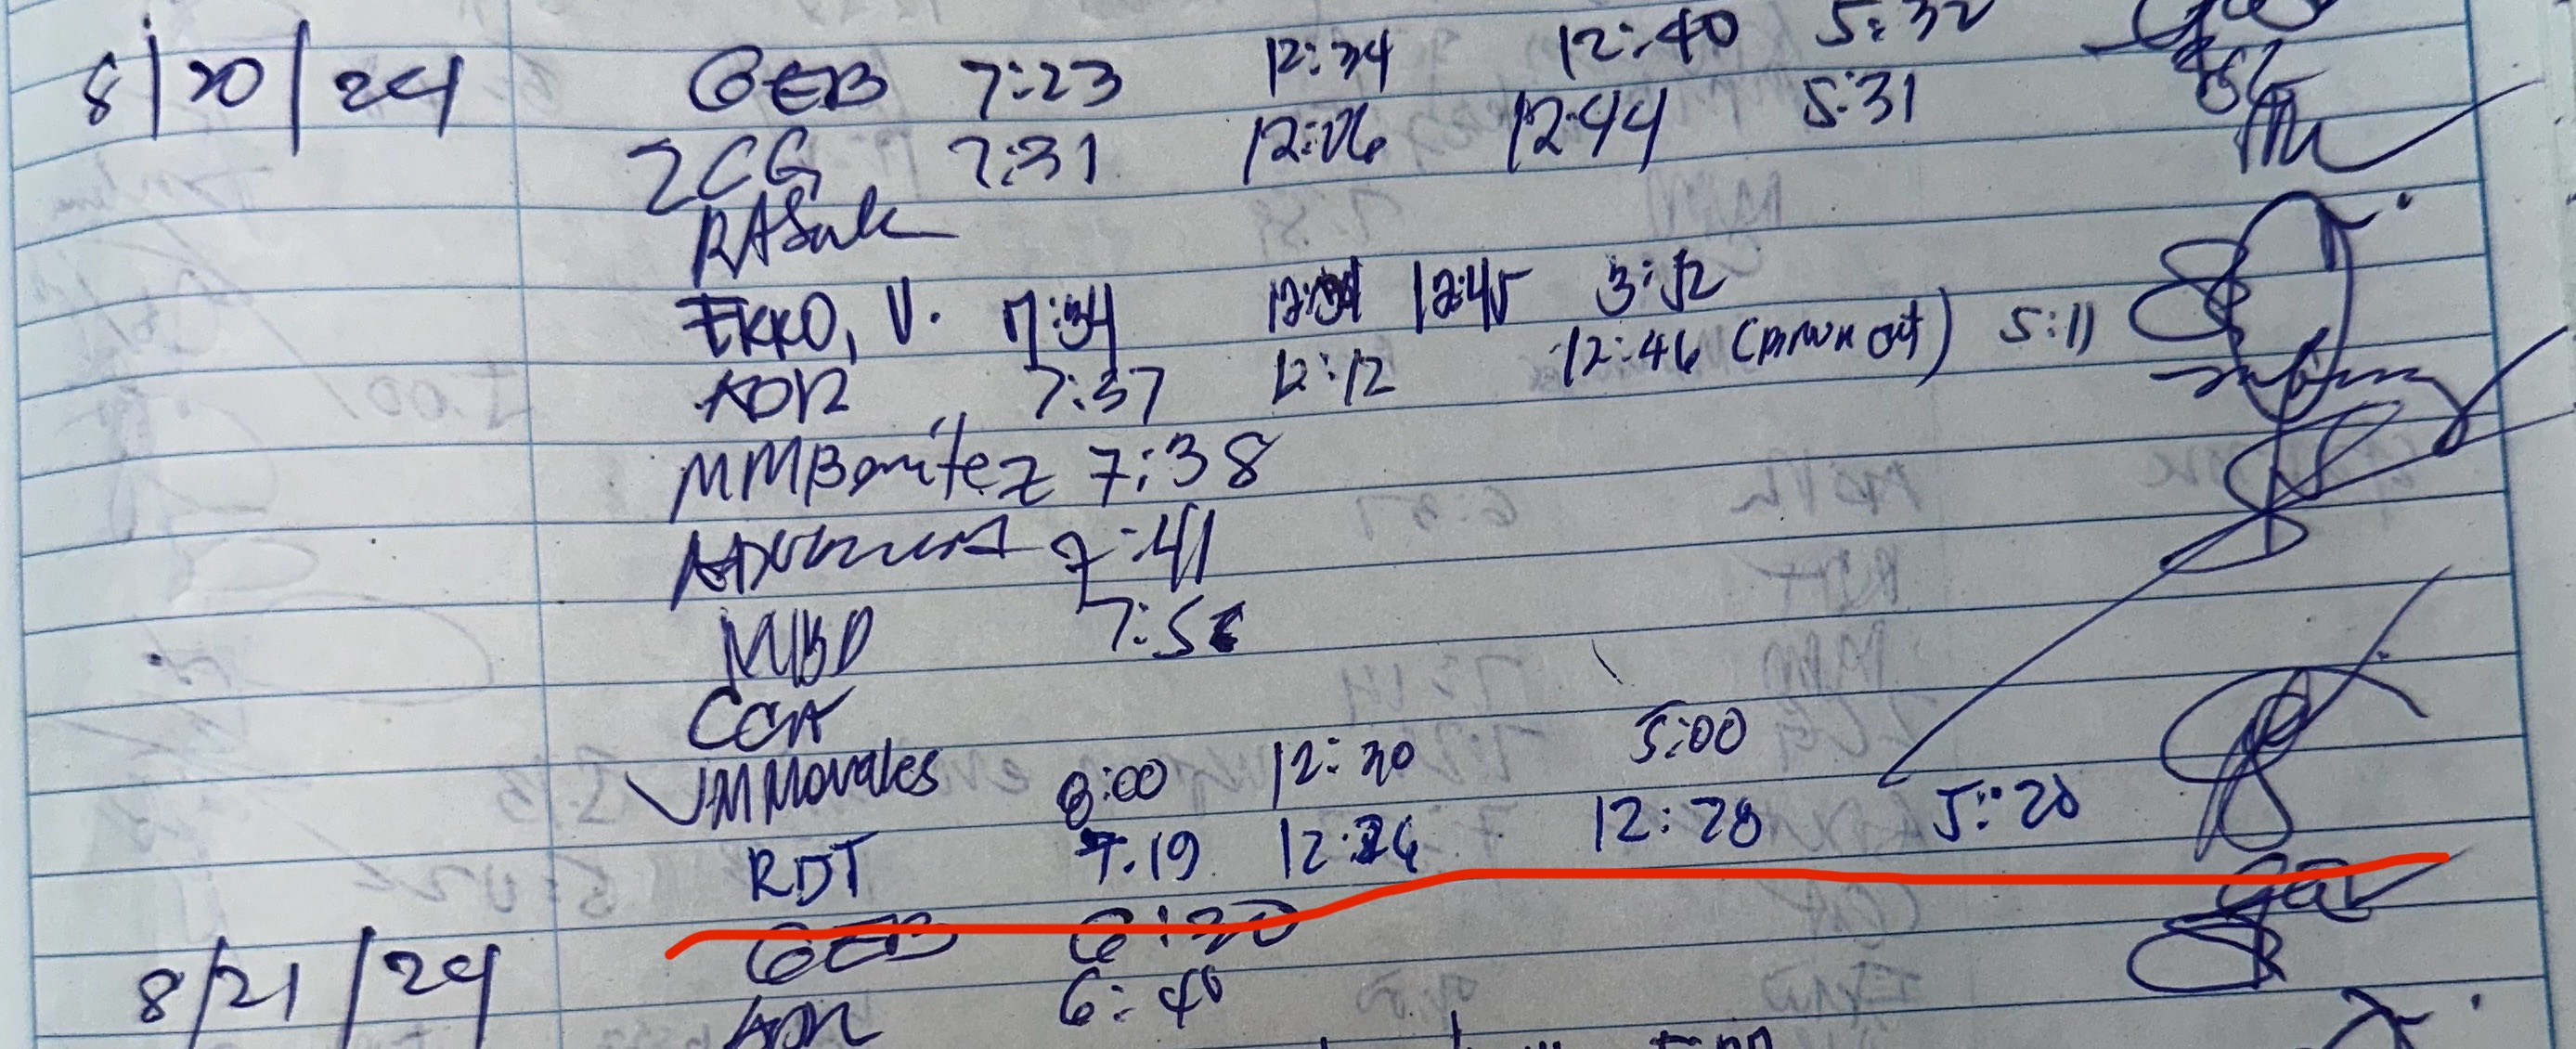 8/20/24 GEB 7:23 12:34 12:40 5:32
ZCG 7:31 12:06 12:44 5:31
EKKO, V. 7:34 12:45 3:52
ADR 7:37 12:12 12:46 (brown out) 5:11
MMBenitez 7:38
7:41
MBD
CCA
JMMorales 8:00 12:30 5:00
RDT 7:19 12:26 12:28 5:28
8/21/24 GEB 6:30
ADR 6:40